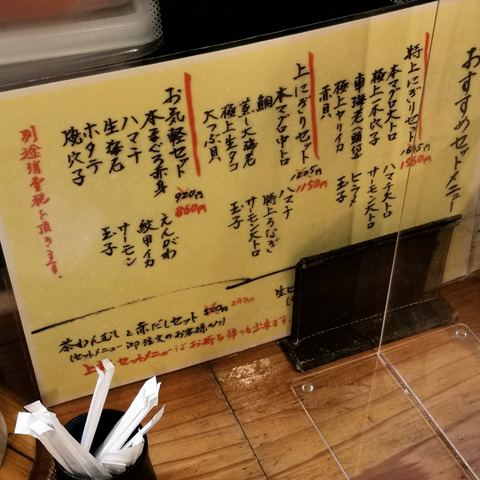 おすすめセットメニュー
特上にぎりセット 1635円 1560円
本マグロ大トロ ハマチ大トロ
極上一本穴子 サーモン大トロ
車海老(頭付) ヒラメ
極上ヤリイカ 玉子
赤貝
上にぎりセット 1205円 1150円
本マグロ中トロ ハマチ
鯛 特上うなぎ
蒸し大海老 サーモン大トロ
極上生タコ 玉子
大つぶ貝
お気軽セット 920円 860円
本まぐろ赤身 えんがわ
ハマチ 紋甲イカ
生海老 サーモン
ホタテ 玉子
焼穴子
別途消費税を頂きます。
茶わんむしと赤だしセット 500円 290円
(セットメニュー御注文のお客様のみ)
セットメニューはお持ち帰りも出来ます。
生ビ